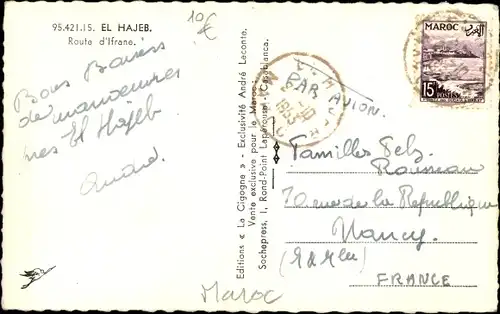 95.421.15. EL HAJEB.
Route d'Ifrane.
10€
Bons Baisers
de manoeuvres
près El Hajeb
André.
Editions « La Cigogne » - Exclusivité André Leconte.
Vente exclusive pour le Maroc:
Sochepress, 1, Rond-Point Lapérouse, Casablanca.
MAROC
15F
POSTES
PAR AVION.
1953
Familles
70 rue de la République
Nancy.
(M & Mlle)
FRANCE
Maroc